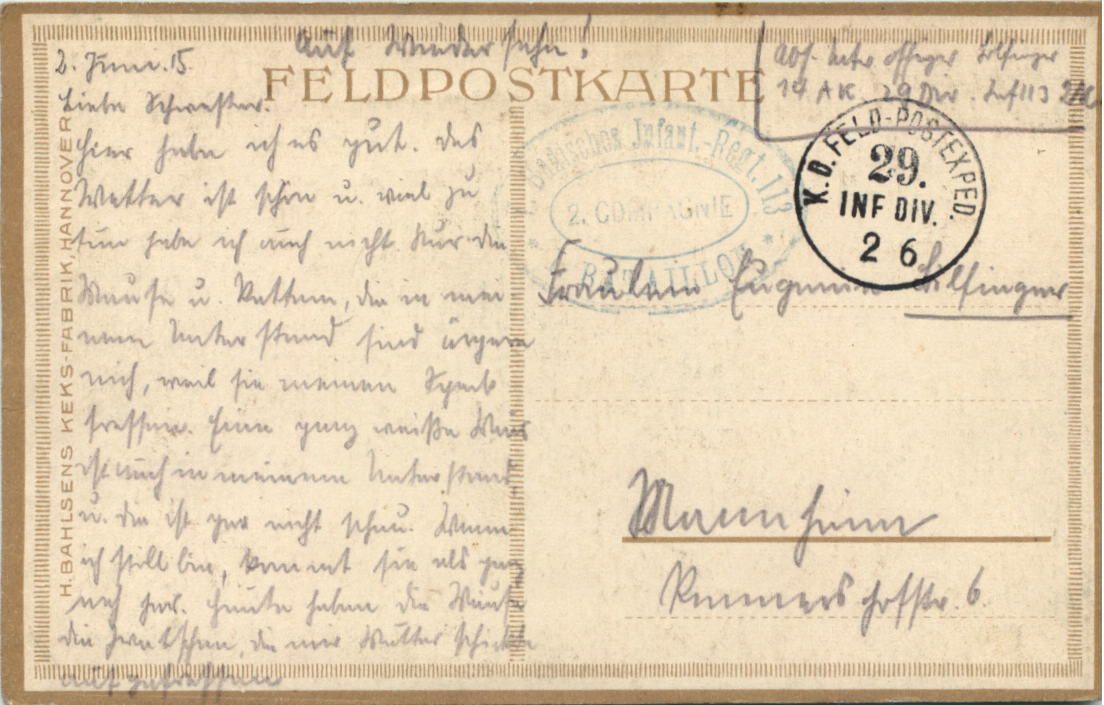 Auf Wiedersehn!
2. Juni. 15.
FELDPOSTKARTE
Abs. Unteroffizier Bilfinger
14 AK. 29 Div. Inf 113
Liebe Schwester.
Hier habe ich es gut. Das
Wetter ist schön u. viel zu
tun habe ich auch nicht. Nur die
Mäuse u. Ratten, die in mei
nem Unterstand sind ärgern
mich, weil sie meinen Speck
fressen. Eine ganz weiße Maus
ist auch in meinem Unterstand
u. die ist gar nicht scheu. Wenn
ich still bin, kommt sie als ganz
nah her. Heute haben die Mäuse
die, die mir Mutter schickte
aufgefressen
H. BAHLSENS KEKS-FABRIK, HANNOVER
Badisches Infant.-Regt. 113
2. COMPAGNIE
BATAILLON
K. D. FELD-POSTEXPED.
29.
INF DIV.
2 6
Fräulein Eugenie Bilfinger
Mannheim
hofstr. 6